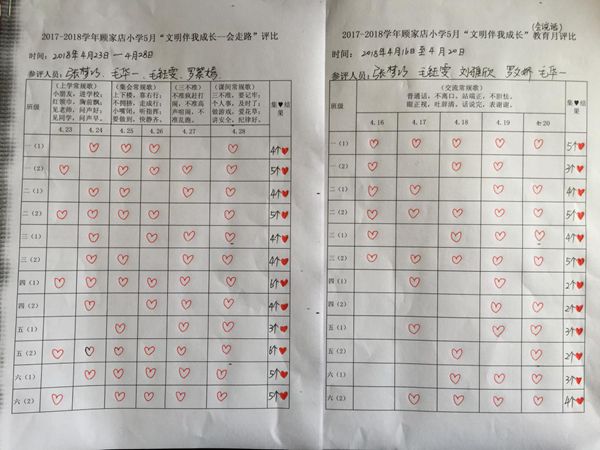 2017-2018学年顾家店小学5月“文明伴我成长—会走路”评比
时间：2018年4月23日—4月28日
参评人员：
班级
（上学常规歌）
小朋友，进学校；
红领巾，胸前飘；
见老师，问声好；
见同学，问声早。
（集会常规歌）
上下楼，靠右行；
不拥挤，走成行；
小嘴闭，听指挥；
要做到，快静齐。
（三不准）
不准疯赶打
闹，不准高
声喧闹，不
准乱跑。
（课间常规歌）
三不准，要记牢；
个人事，及时了；
做游戏，爱花草；
讲安全，纪律好。
集♥结果
4.23 4.24 4.25 4.26 4.27 4.28
一（1） 4个♥
一（2） 5个♥
二（1） 4个♥
二（2） 5个♥
三（1） 4个♥
三（2） 4个♥
四（1） 6个♥
四（2） 4个♥
五（1） 3个♥
五（2） 6个♥
六（1） 5个♥
六（2） 5个♥
（会说话）
2017-2018学年顾家店小学5月“文明伴我成长”教育月评比
时间：2018年4月16日至4月20日
参评人员：
班级
（交流常规歌）
普通话，不离口，站端正，不胆怯。
眼正视，吐辞清，话说完，表谢谢。
集♥结果
4.16 4.17 4.18 4.19 4.20
一（1） 5个♥
一（2） 3个♥
二（1） 4个♥
二（2） 5个♥
三（1） 4个♥
三（2） 5个♥
四（1） 2个♥
四（2） 2个♥
五（1） 3个♥
五（2） 2个♥
六（1） 3个♥
六（2） 4个♥